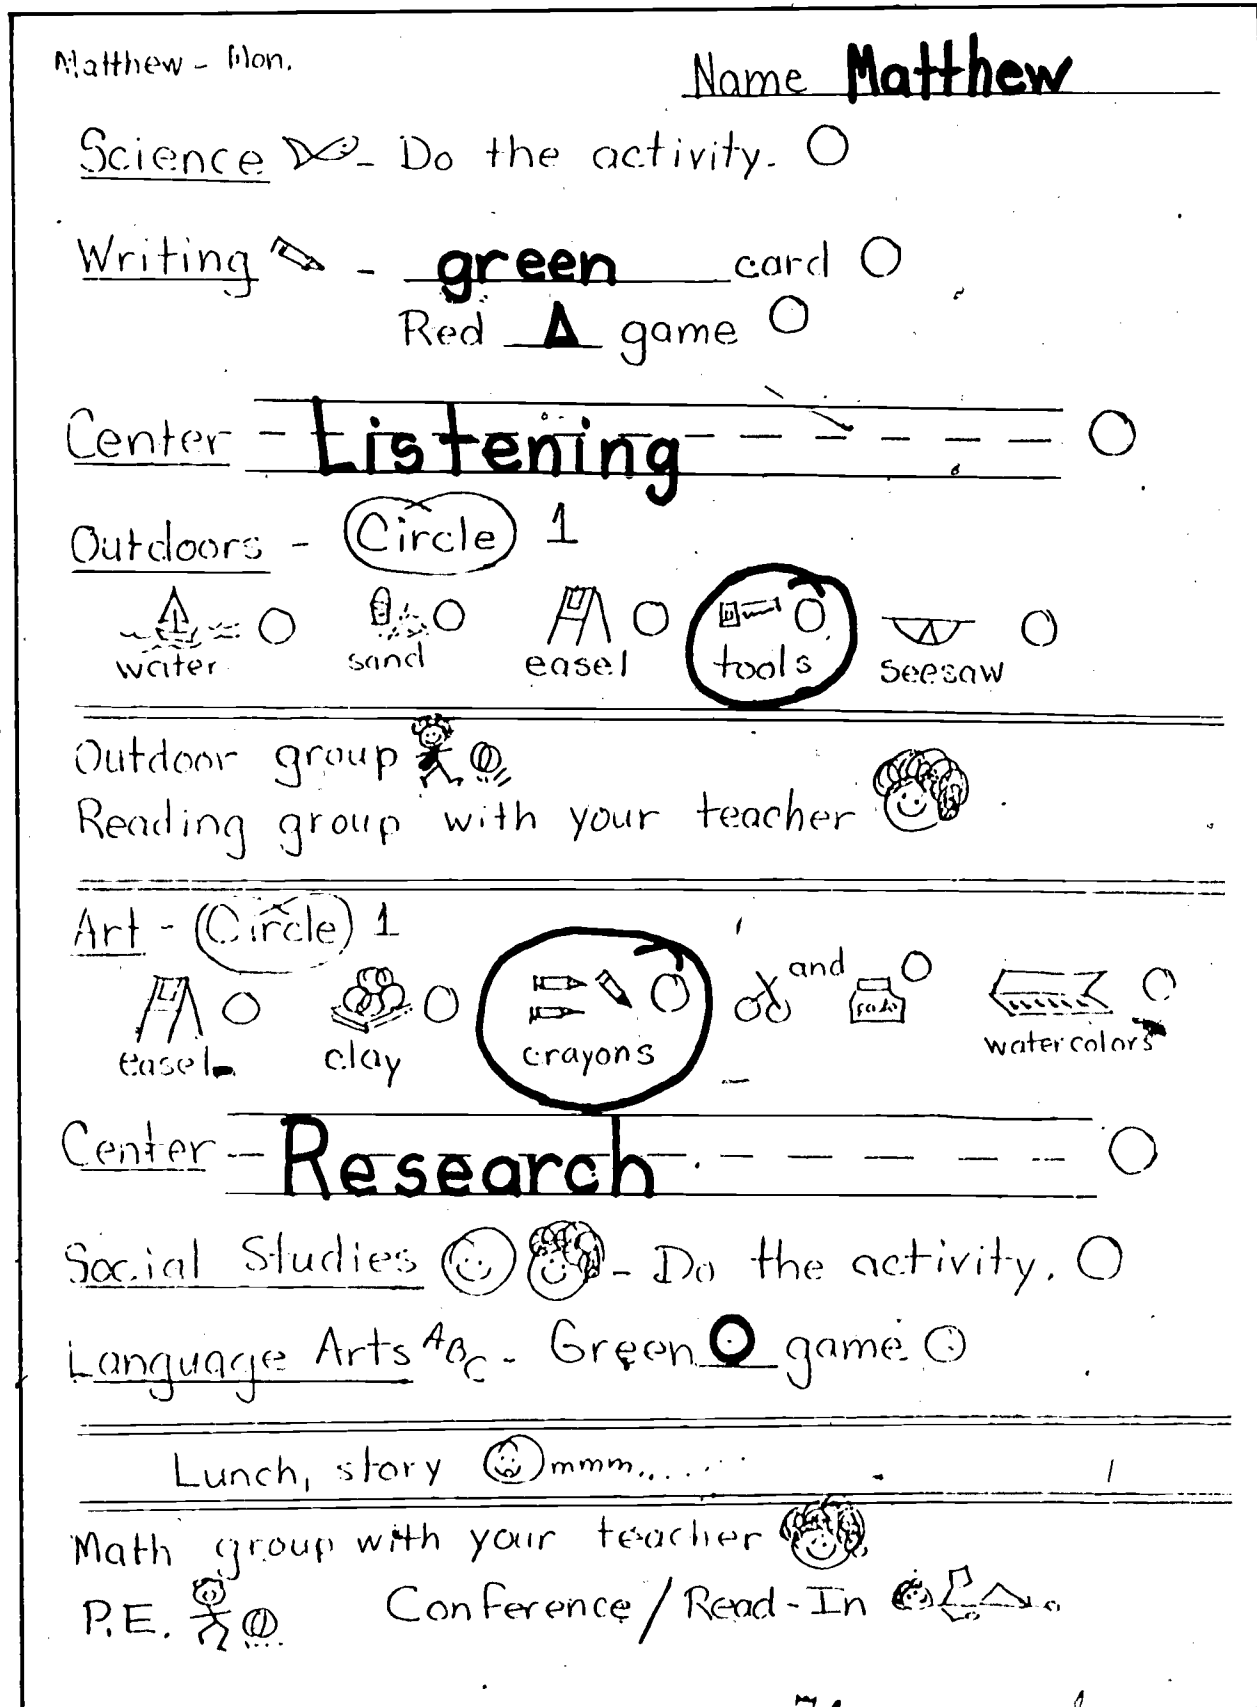 Matthew - Mon.
Name Matthew
Science - Do the activity.
Writing - green card
Red Δ game
Center - Listening
Outdoors - Circle 1
water sand easel tools seesaw
Outdoor group
Reading group with your teacher
Art - Circle 1
and
paste
easel clay crayons watercolors
Center - Research
Social Studies - Do the activity.
Language Arts ABC - Green O game
Lunch, story mmm......
Math group with your teacher
P.E. Conference / Read-In